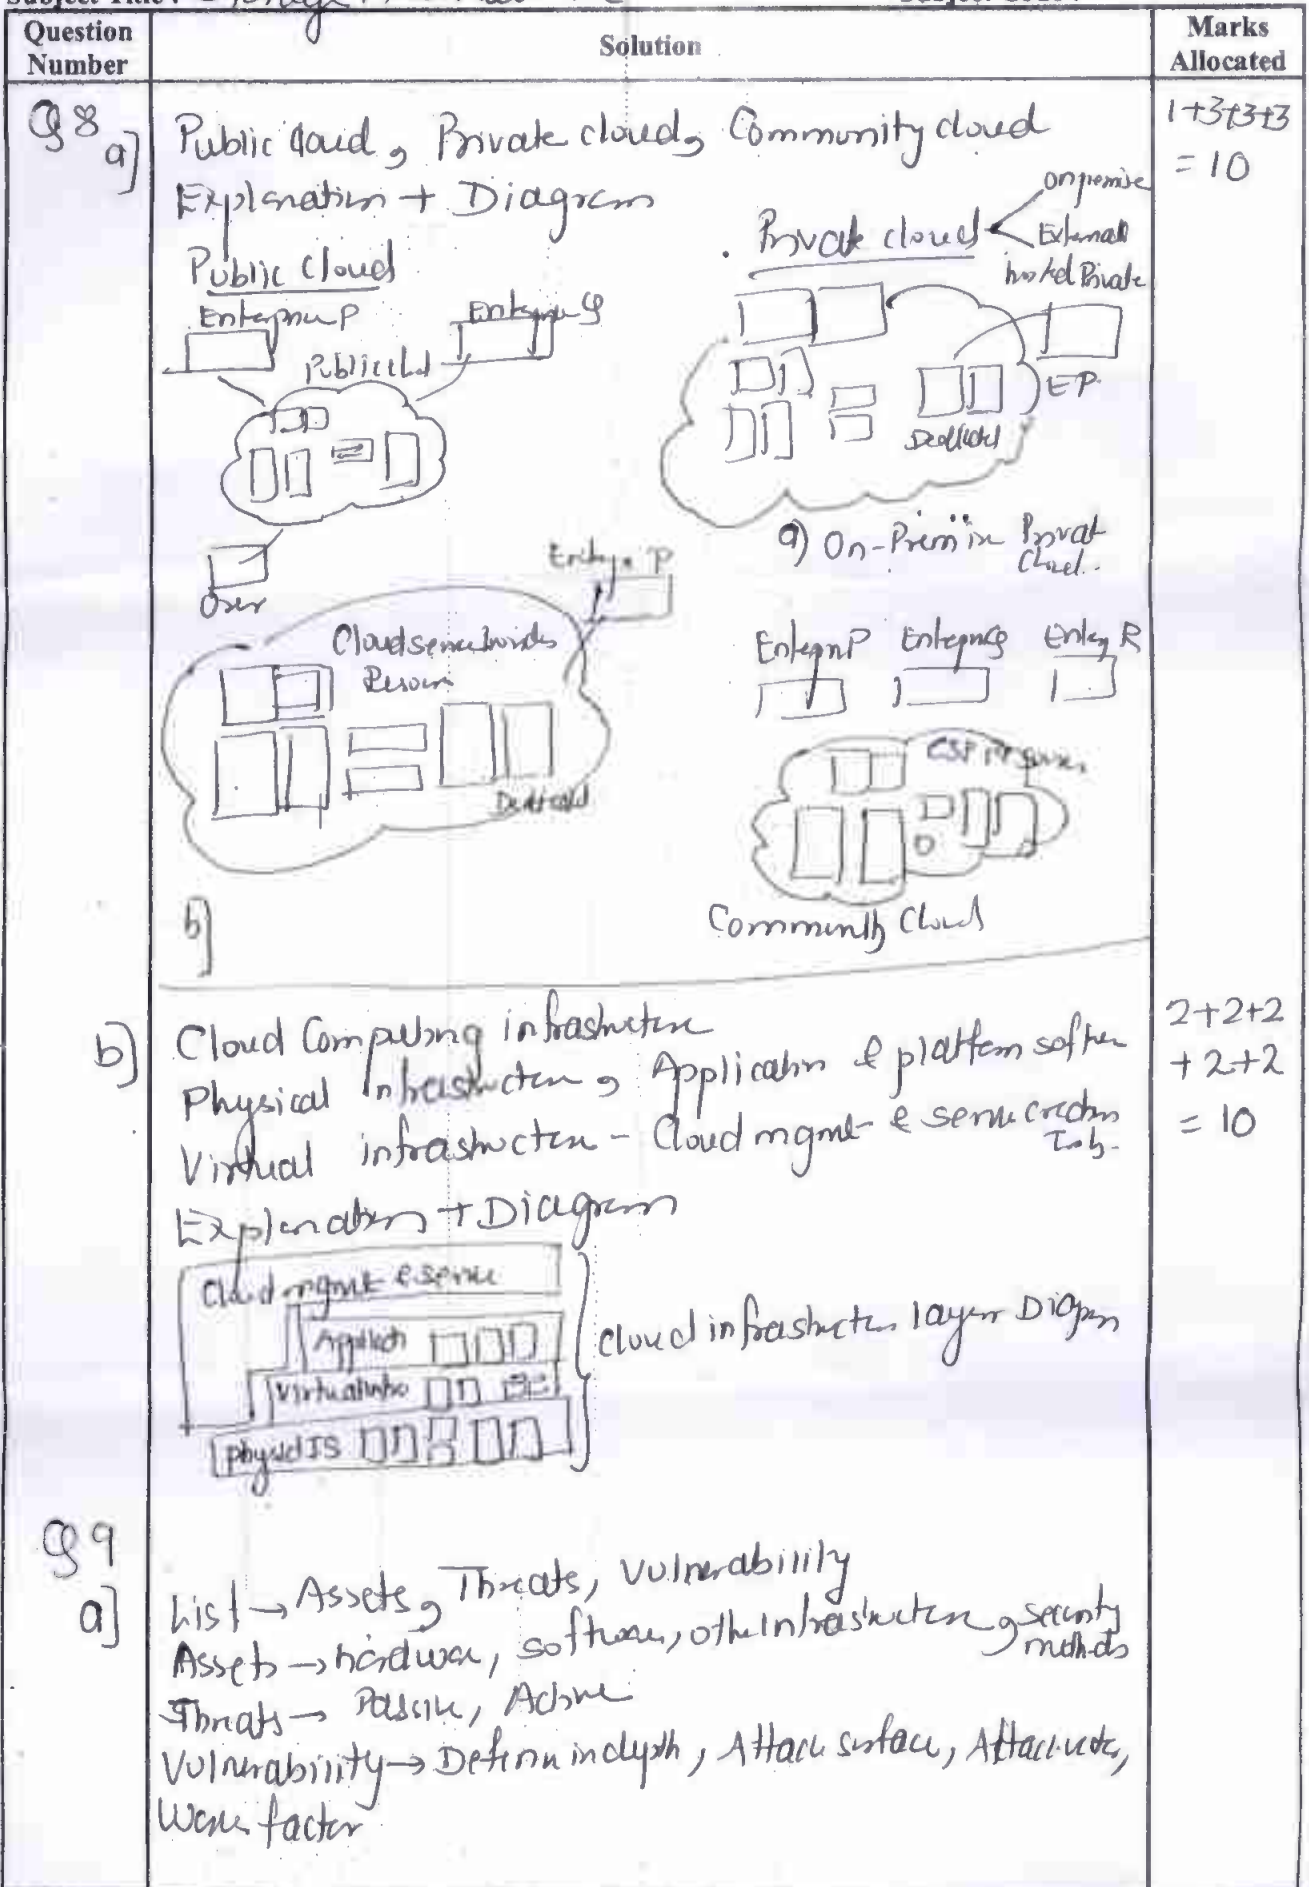 Question Number
Solution
Marks Allocated
Q8 a]
Public cloud, Private cloud, Community cloud
1+3+3+3
= 10
Explanation + Diagram
Public Cloud
Enterprise P
Public cld
User
Private cloud
on premise
External
hosted Private
EP.
Dedicated
a) On-Premise Privat Cloud.
Enterp. P
Cloud service
Dedicated
b]
Enterp P
Enterp Q
Enterp R
CSP
Community Cloud
b]
Cloud Computing infrastructure
2+2+2
+2+2
= 10
Physical infrastructure, Application & platform softwre
Virtual infrastructure - Cloud mgmt & service creation
Explanation + Diagram
Cloud mgmt & servic
Applicatn
Virtual
Physicl IS
cloud infrastructure layer Diagrm
Q9
a]
List → Assets, Threats, Vulnerability
Assets → hardware, software, other infrastructure, security methods
Threats → Passive, Active
Vulnerability → Defense in depth, Attack surface, Attack vector,
Work factor